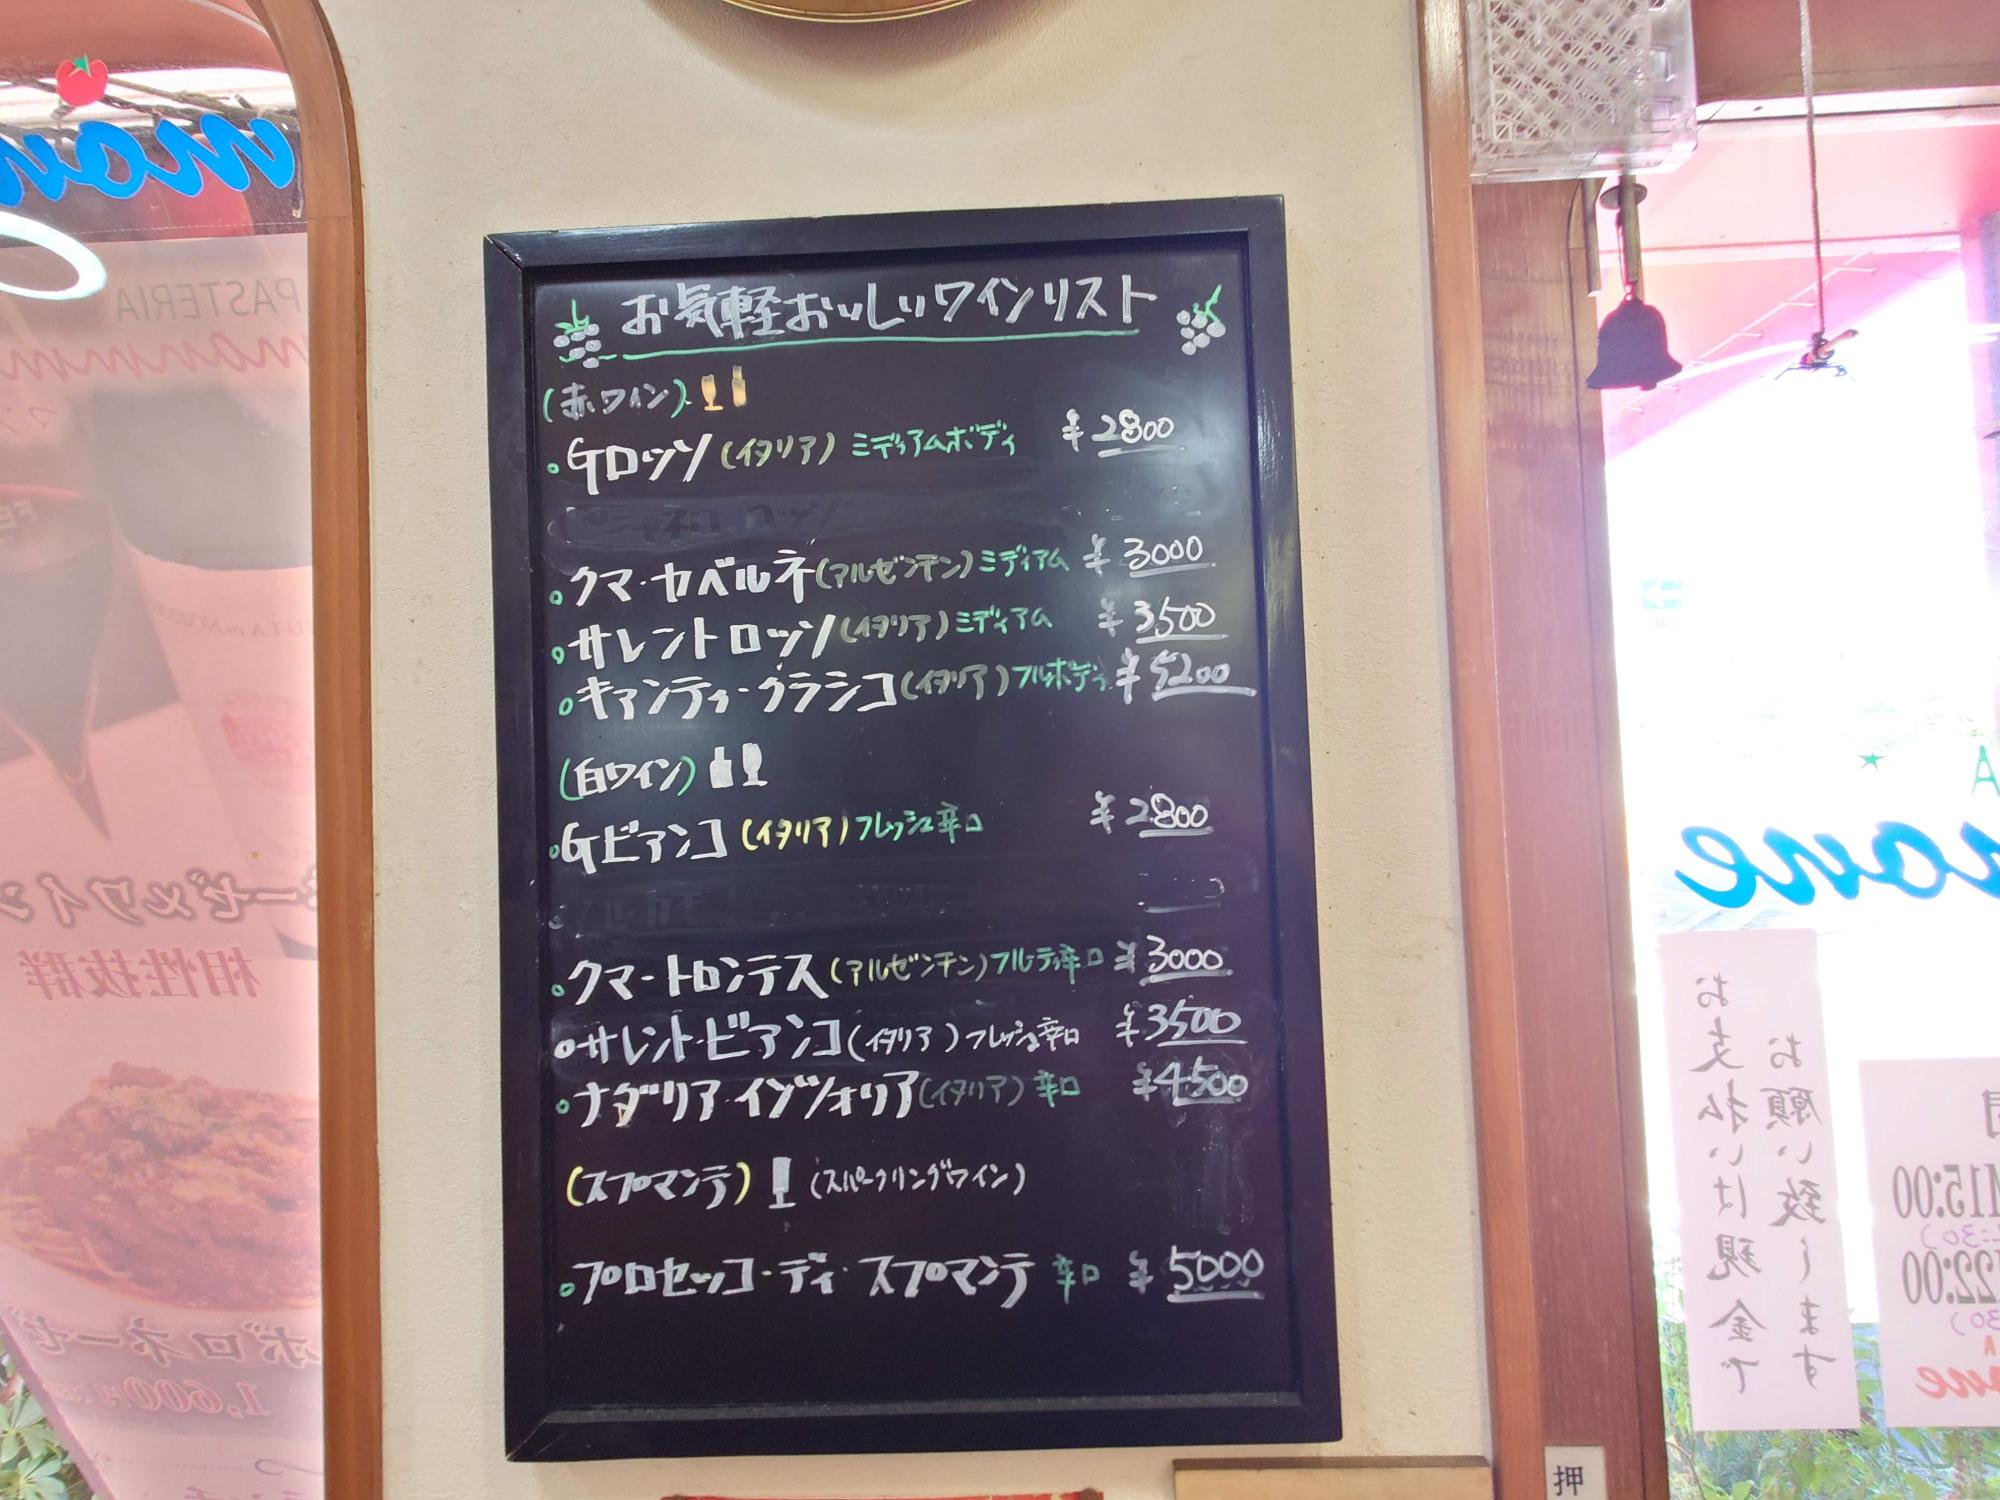 お気軽おいしいワインリスト
(赤ワイン)
Gロッソ (イタリア) ミディアムボディ ¥2800
クマ・カベルネ (アルゼンチン) ミディアム ¥3000
サレントロッソ (イタリア) ミディアム ¥3500
キァンティ・クラシコ (イタリア) フルボディ ¥5200
(白ワイン)
Gビアンコ (イタリア) フレッシュ辛口 ¥2800
クマ・トロンテス (アルゼンチン) フルーティ辛口 ¥3000
サレント・ビアンコ (イタリア) フレッシュ辛口 ¥3500
ナダリア・インヅォリア (イタリア) 辛口 ¥4500
(スプマンテ) (スパークリングワイン)
プロセッコ・ディ・スプマンテ 辛口 ¥5000
PASTERIA
相性抜群
ボロネーゼ
お支払いは現金で
お願い致します
15:00
22:00
押